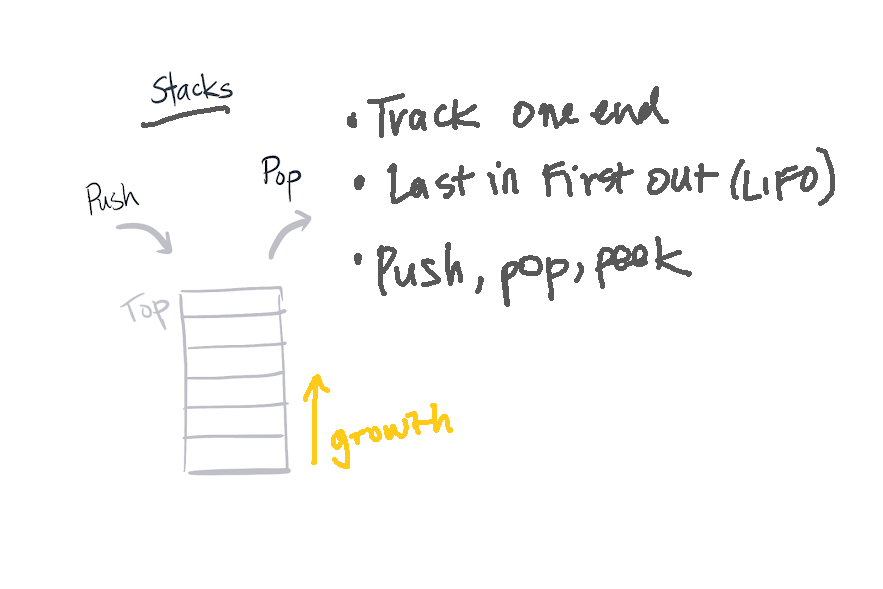 Stacks
Push
Pop
Top
growth
• Track one end
• Last in First out (LIFO)
• Push, pop, peek